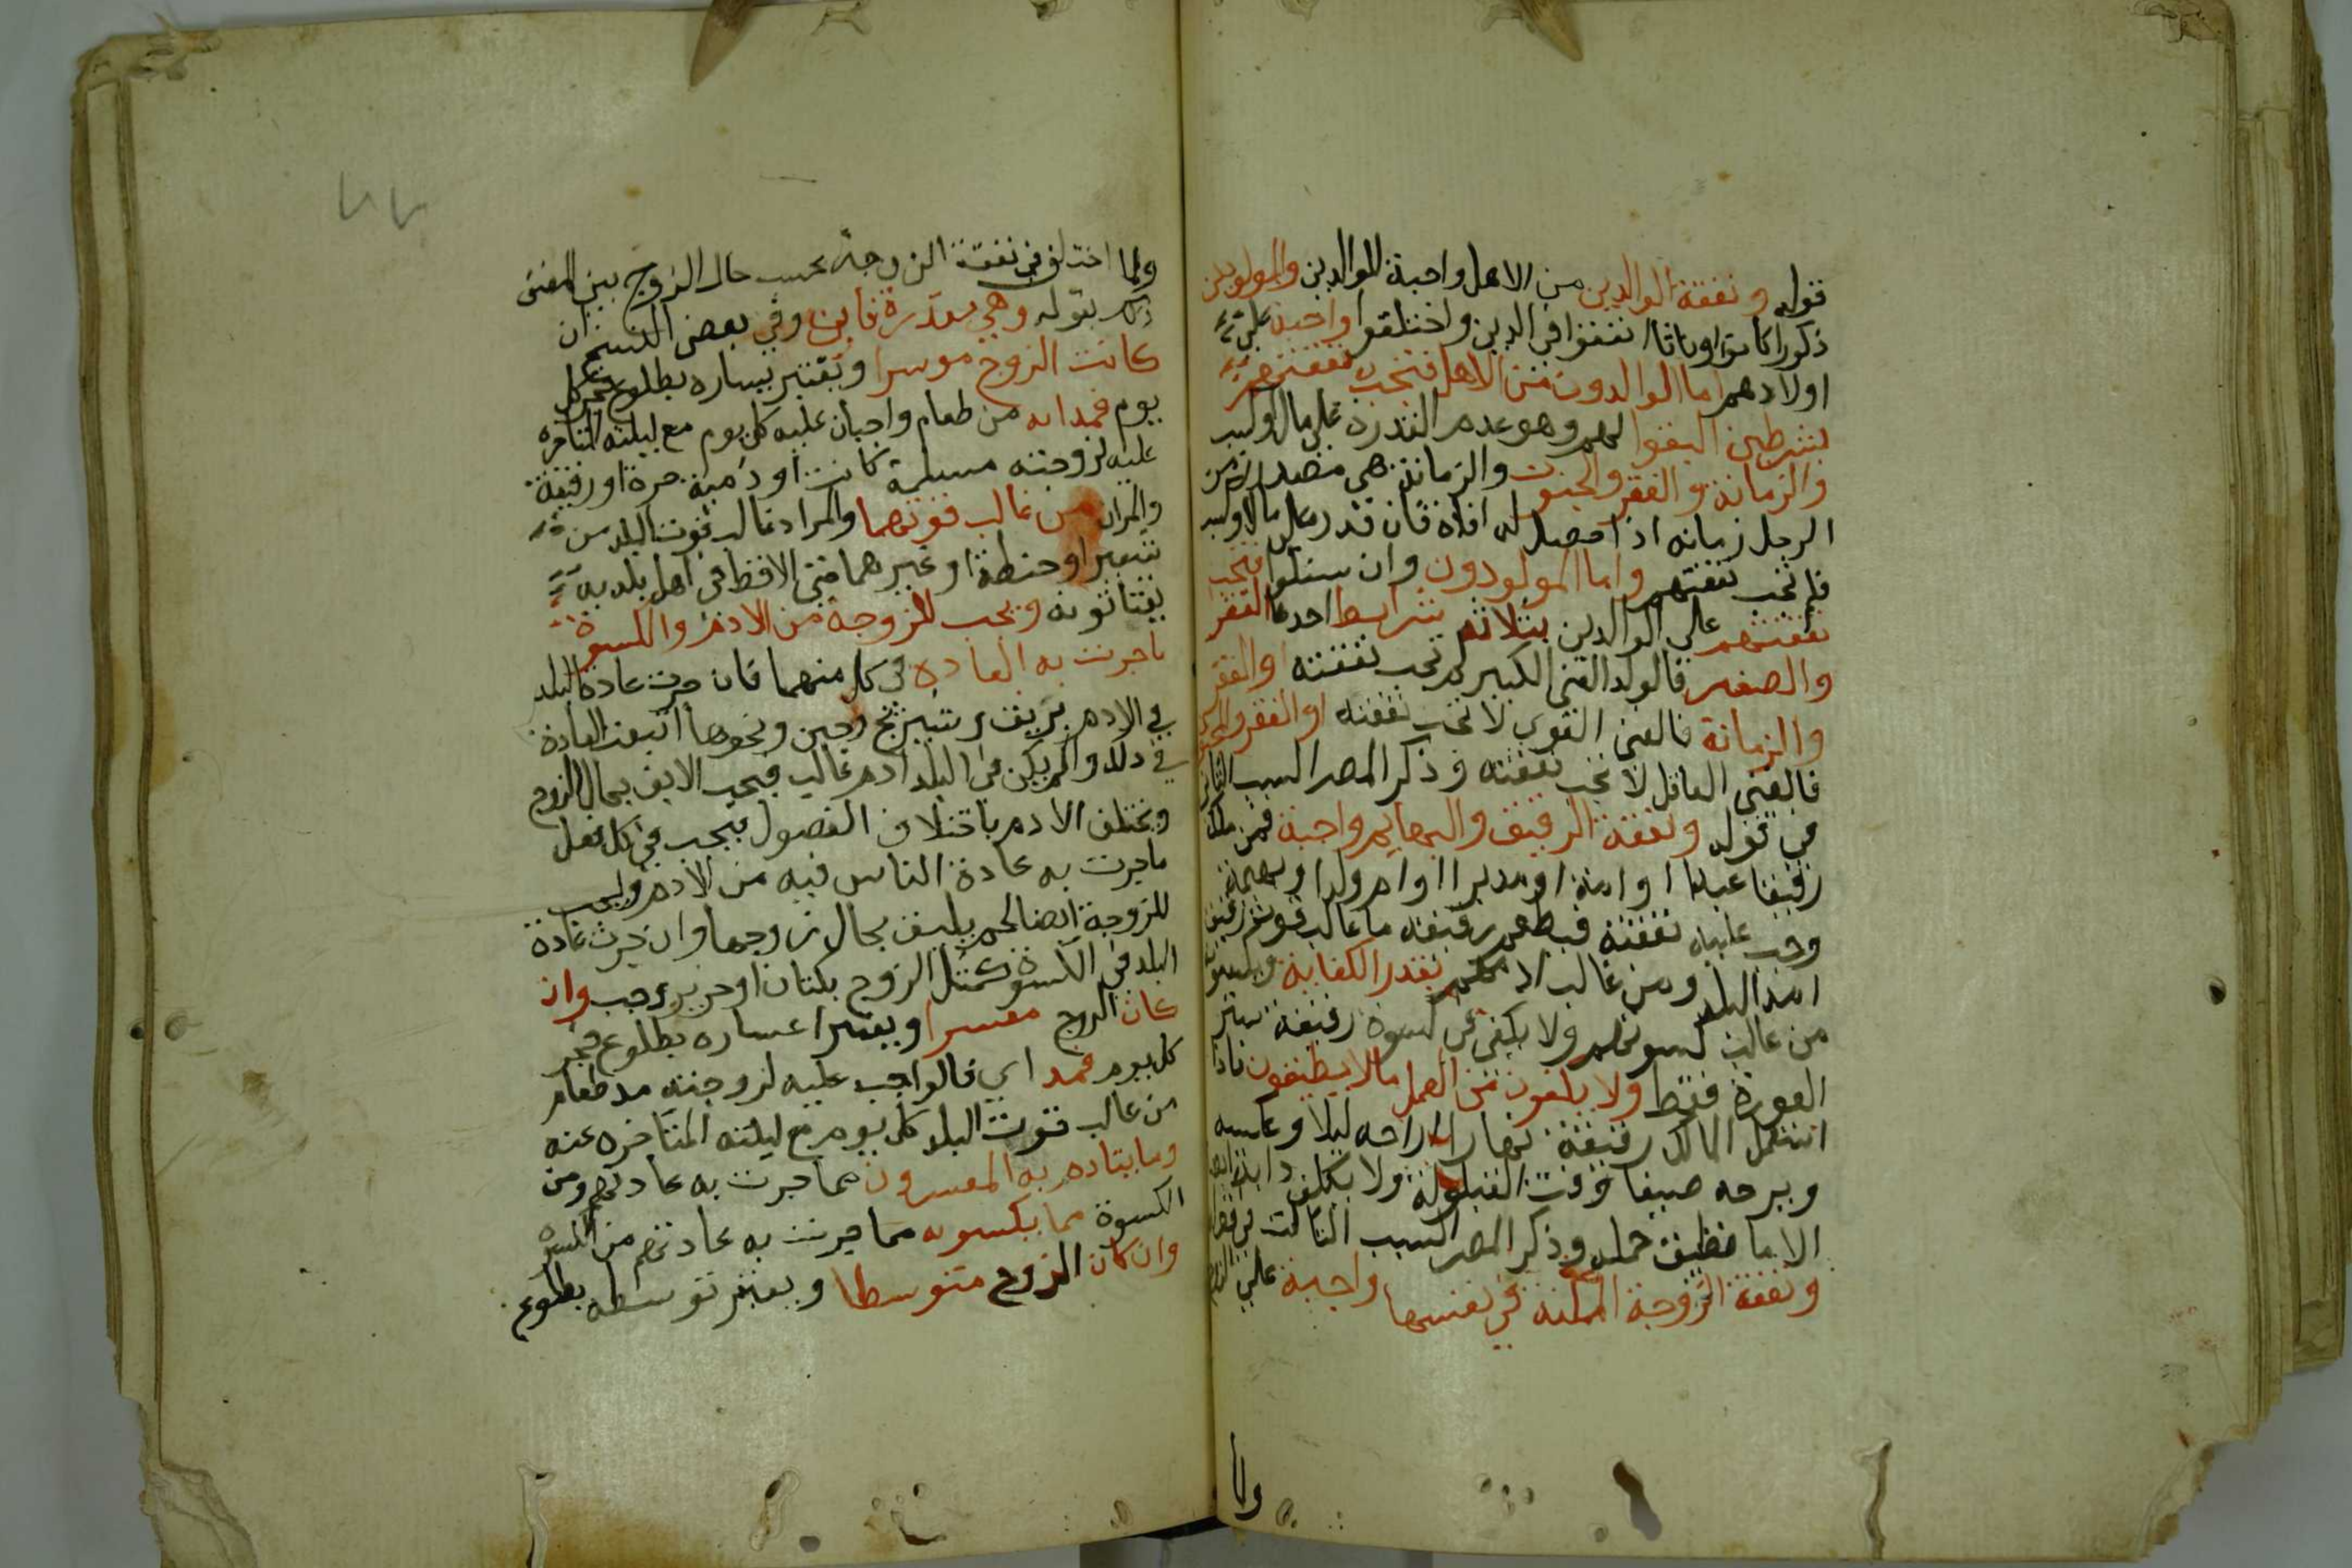 قوله ونفقة الوالدين من الاهل واجبة للوالدين والمولودين
ذكورا كانوا او اناثا اتفقوا في الدين واختلفوا واجبة على
اولادهم اما الوالدون من الاهل فتجب نفقتهم
بشرطين الفقر لهم وهو عدم القدرة على مال او كسب
والزمانة والفقر والجنون والزمانة هي مصدر زمن
الرجل زمانه اذا حصل له افاة فان قدر على مال او كسب
فلم تجب نفقتهم واما المولودون وان سفلوا فتجب
نفقتهم على الوالدين بثلاثة شرايط احدها الفقر
والصغر فالولد الغني الكبير لم تجب نفقته او الفقر
والزمانة فالغني القوي لا تجب نفقته او الفقر والجنون
فالغني العاقل لا تجب نفقته وذكر المص السبب الثاني
في قوله ونفقة الرقيق والبهايم واجبة فمن ملك
رقيقا عبدا او امة او مدبرا او ام ولد او بهيمة
وجب عليه نفقته فيطعم رقيقه ما غالب قوتهم رقيق
اهل البلد ومن غالب ادمهم بقدر الكفاية ويكسوه
من غالب كسوتهم ولا يكفي في كسوة رقيقه ستر
العورة فقط ولا يكلفون من العمل ما لا يطيقون فاذا
استعمل المالك رقيقه نهارا اراحه ليلا وعكسه
ويرحه صيفا وقت القيلولة ولا يكلف دابته ايضا
الا ما تطيق حمله وذكر المص السبب الثالث في قوله
ونفقة الزوجة الممكنة في نفسها واجبة على الزوج
ولما
ولما اختلف في نفقة الزوجة بحسب حال الزوج بين المص
ذلك بقوله وهي مقدرة فان وفي بعض النسخ ان
كانت الزوج موسرا ويعتبر يساره بطلوع فجر كل
يوم فمدان من طعام واجبان عليه كل يوم مع ليلته المتاخره
عليه لزوجته مسلمة كانت او ذمية حرة او رقيقة
والمدان من غالب قوتهما والمراد غالب قوت البلد من
شعير او حنطة او غيرهما حتى الاقط في اهل بلد به
يقتاتونه ويجب للزوجة من الادم والكسوة
ما جرت به العاده في كل منهما فان جرت عادة البلد
في الادم بزيت وشيرج وجبن ونحوها اتبعت العادة
في ذلك وان لم يكن في البلد ادم غالب فيجب الايق بحال الزوج
ويختلف الادم باختلاف الفصول فيجب في كل فصل
ما جرت به عادة الناس فيه من الادم ويجب
للزوجة ايضا لحم يليق بحال زوجها وان جرت عادة
البلد في الكسوة كمثل الزوج بكتان او حرير وجب وان
كان الزوج معسرا ويعتبر اعساره بطلوع فجر
كل يوم فمد اي فالواجب عليه لزوجته مد طعام
من غالب قوت البلد كل يوم مع ليلته المتاخره عنه
وما يتادم به المعسرون مما جرت به عادتهم ومن
الكسوة مما يكسونه مما جرت به عادتهم من الكسوة
وان كان الزوج متوسطا ويعتبر توسطه بطلوع